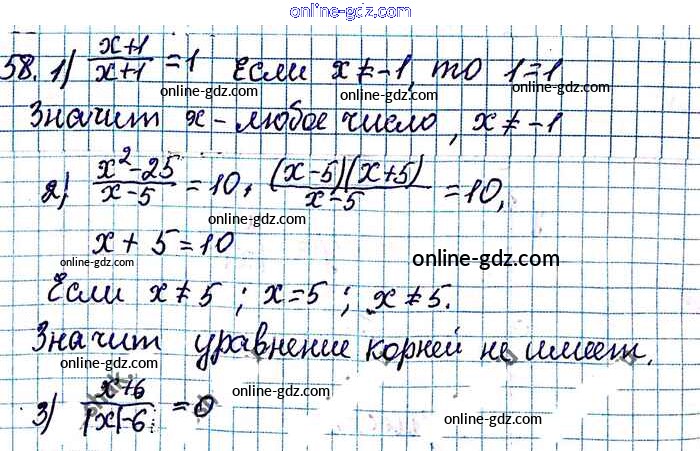 online-gdz.com
58. 1) x+1/x+1 = 1 Если x ≠ -1, то 1=1
online-gdz.com online-gdz.com
Значит x - любое число, x ≠ -1
online-gdz.com online-gdz.com
2) x²-25/x-5 = 10, (x-5)(x+5)/x-5 = 10,
online-gdz.com
x + 5 = 10
online-gdz.com online-gdz.com
Если x ≠ 5 ; x = 5 ; x ≠ 5.
Значит уравнение корней не имеет.
online-gdz.com online-gdz.com
3) x+6/|x|-6 = 0
online-gdz.com online-gdz.com